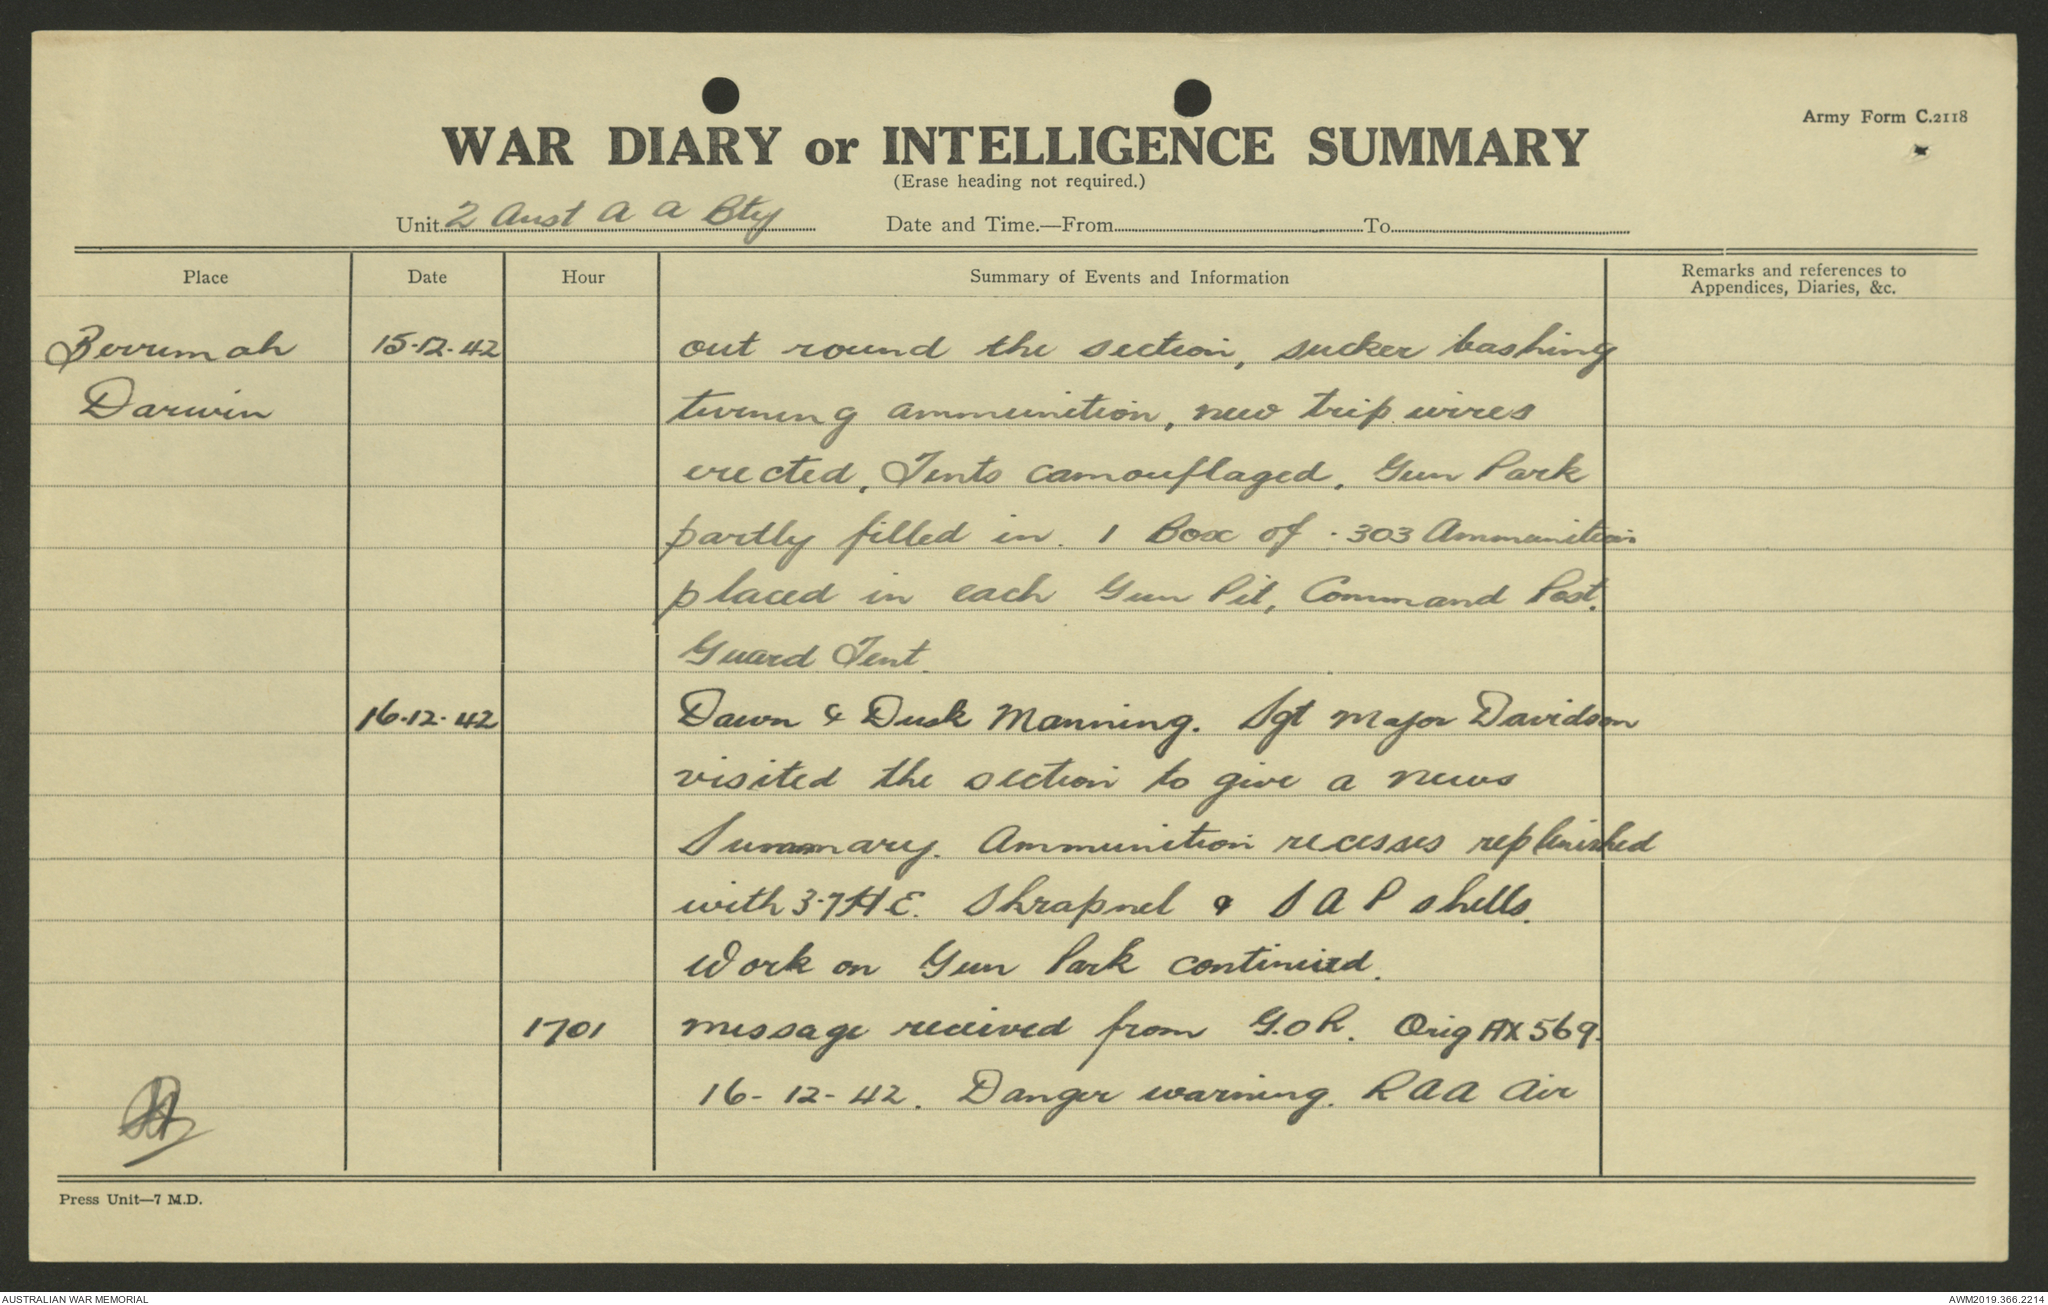 Army Form C.2118
WAR DIARY or INTELLIGENCE SUMMARY
(Erase heading not required.)
Unit 2 Aust A A Bty Date and Time.—From To
Place Date Hour Summary of Events and Information Remarks and references to Appendices, Diaries, &c.
Berrimah 15.12.42 out round the section, sucker bashing
Darwin turning ammunition, new trip wires
erected, Tents camouflaged, Gun Park
partly filled in. 1 Box of .303 Ammunition
placed in each Gun Pit, Command Post.
Guard Tent.
16.12.42 Dawn & Dusk Manning. Sgt Major Davidson
visited the section to give a news
Summary. Ammunition recesses replenished
with 3.7 H E. Shrapnel & S A P shells.
Work on Gun Park continued.
1701 message received from G.O.R. Orig AX 569.
16-12-42. Danger warning. R A A Air
Press Unit—7 M.D.
AUSTRALIAN WAR MEMORIAL AWM2019.366.2214